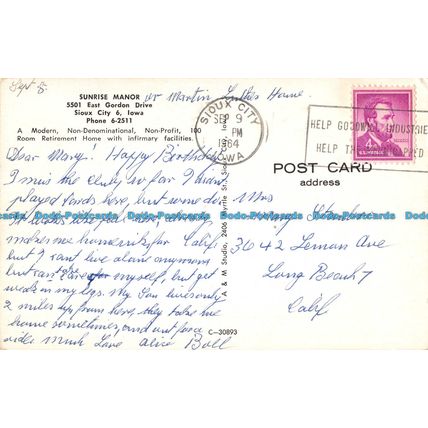 Sept 8
SUNRISE MANOR or Martin Luther Home
5501 East Gordon Drive
Sioux City 6, Iowa
Phone 6-2511
A Modern, Non-Denominational, Non-Profit, 100
Room Retirement Home with infirmary facilities.
Dear Mary: Happy Birthday
I miss the club so far I haven't
played cards here, but some do.
It looks
makes me homesick for Calif
but I can't live alone anymore
but can take care of myself, but get
weak in my legs. My Son lives only
2 miles up from here, they take me
home sometimes, and out for a
ride. Much Love Alice Ball
A & M Studio, 2406 Myrtle St., Sioux City, Iowa
C-30893
SIOUX CITY
SEP 9
PM
1964
IOWA
HELP GOODWILL INDUSTRIES
HELP THE HANDICAPPED
POST CARD
address
Mrs
Mary
3642 Lemon Ave
Long Beach 7
Calif
Dodo-Postcards Dodo-Postcards Dodo-Postcards Dodo-Postcards Dodo-Postcards